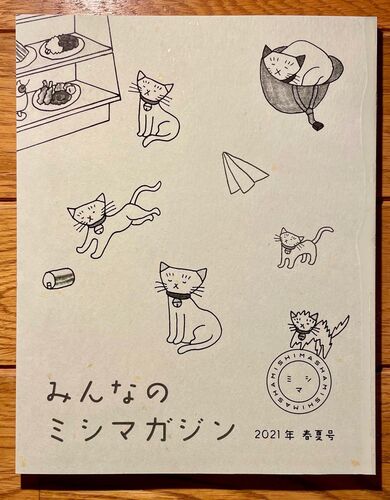 MISHIMASHAMISHIMASHA
ミシ
マ
みんなの
ミシマガジン
2021年 春夏号